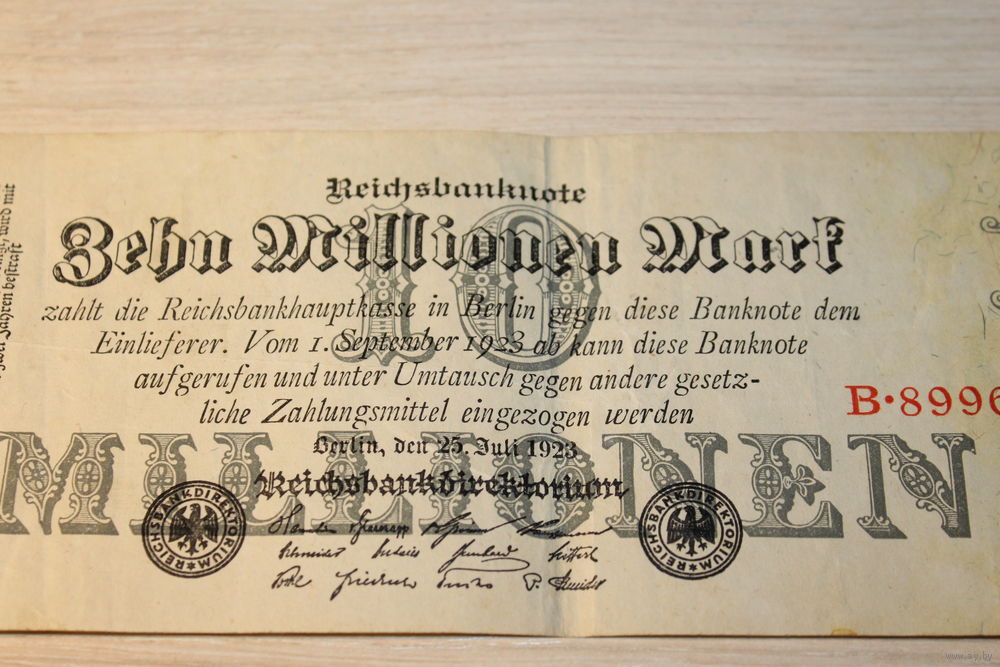 Reichsbanknote
Zehn Millionen Mark
10
zahlt die Reichsbankhauptkasse in Berlin gegen diese Banknote dem
Einlieferer. Vom 1. September 1923 ab kann diese Banknote
aufgerufen und unter Umtausch gegen andere gesetz-
liche Zahlungsmittel eingezogen werden
B·8996
Berlin, den 25. Juli 1923
MILLIONEN
Reichsbankdirektorium
REICHSBANKDIREKTORIUM
REICHSBANKDIREKTORIUM
wird mit
zwei Jahren bestraft
www.ay.by